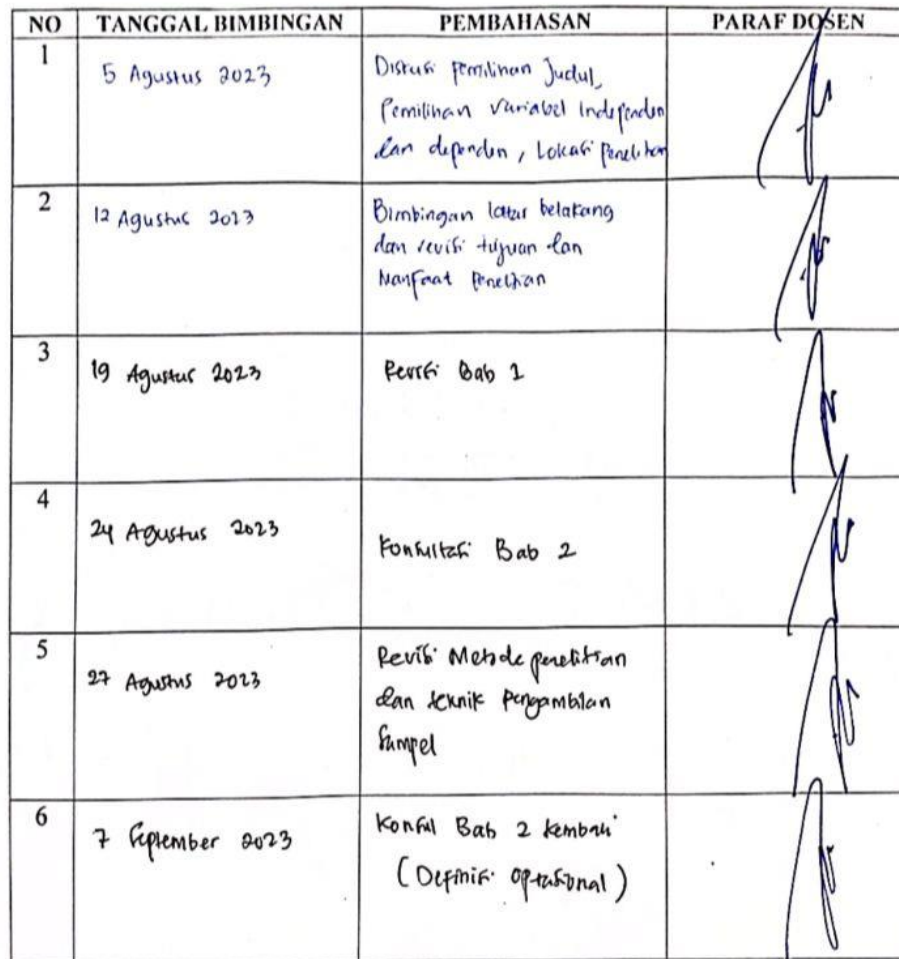 NO TANGGAL BIMBINGAN PEMBAHASAN PARAF DOSEN
1
5 Agustus 2023
Diskusi pemilihan Judul,
Pemilihan Variabel Independen
dan dependen, Lokasi Penelitian
2
12 Agustus 2023
Bimbingan latar belakang
dan revisi tujuan dan
Manfaat Penelitian
3
19 Agustus 2023
Revisi Bab 1
4
24 Agustus 2023
Konsultasi Bab 2
5
27 Agustus 2023
Revisi Metode penelitian
dan teknik pengambilan
Sampel
6
7 September 2023
Konsul Bab 2 kembali
(Definisi Oprasional)